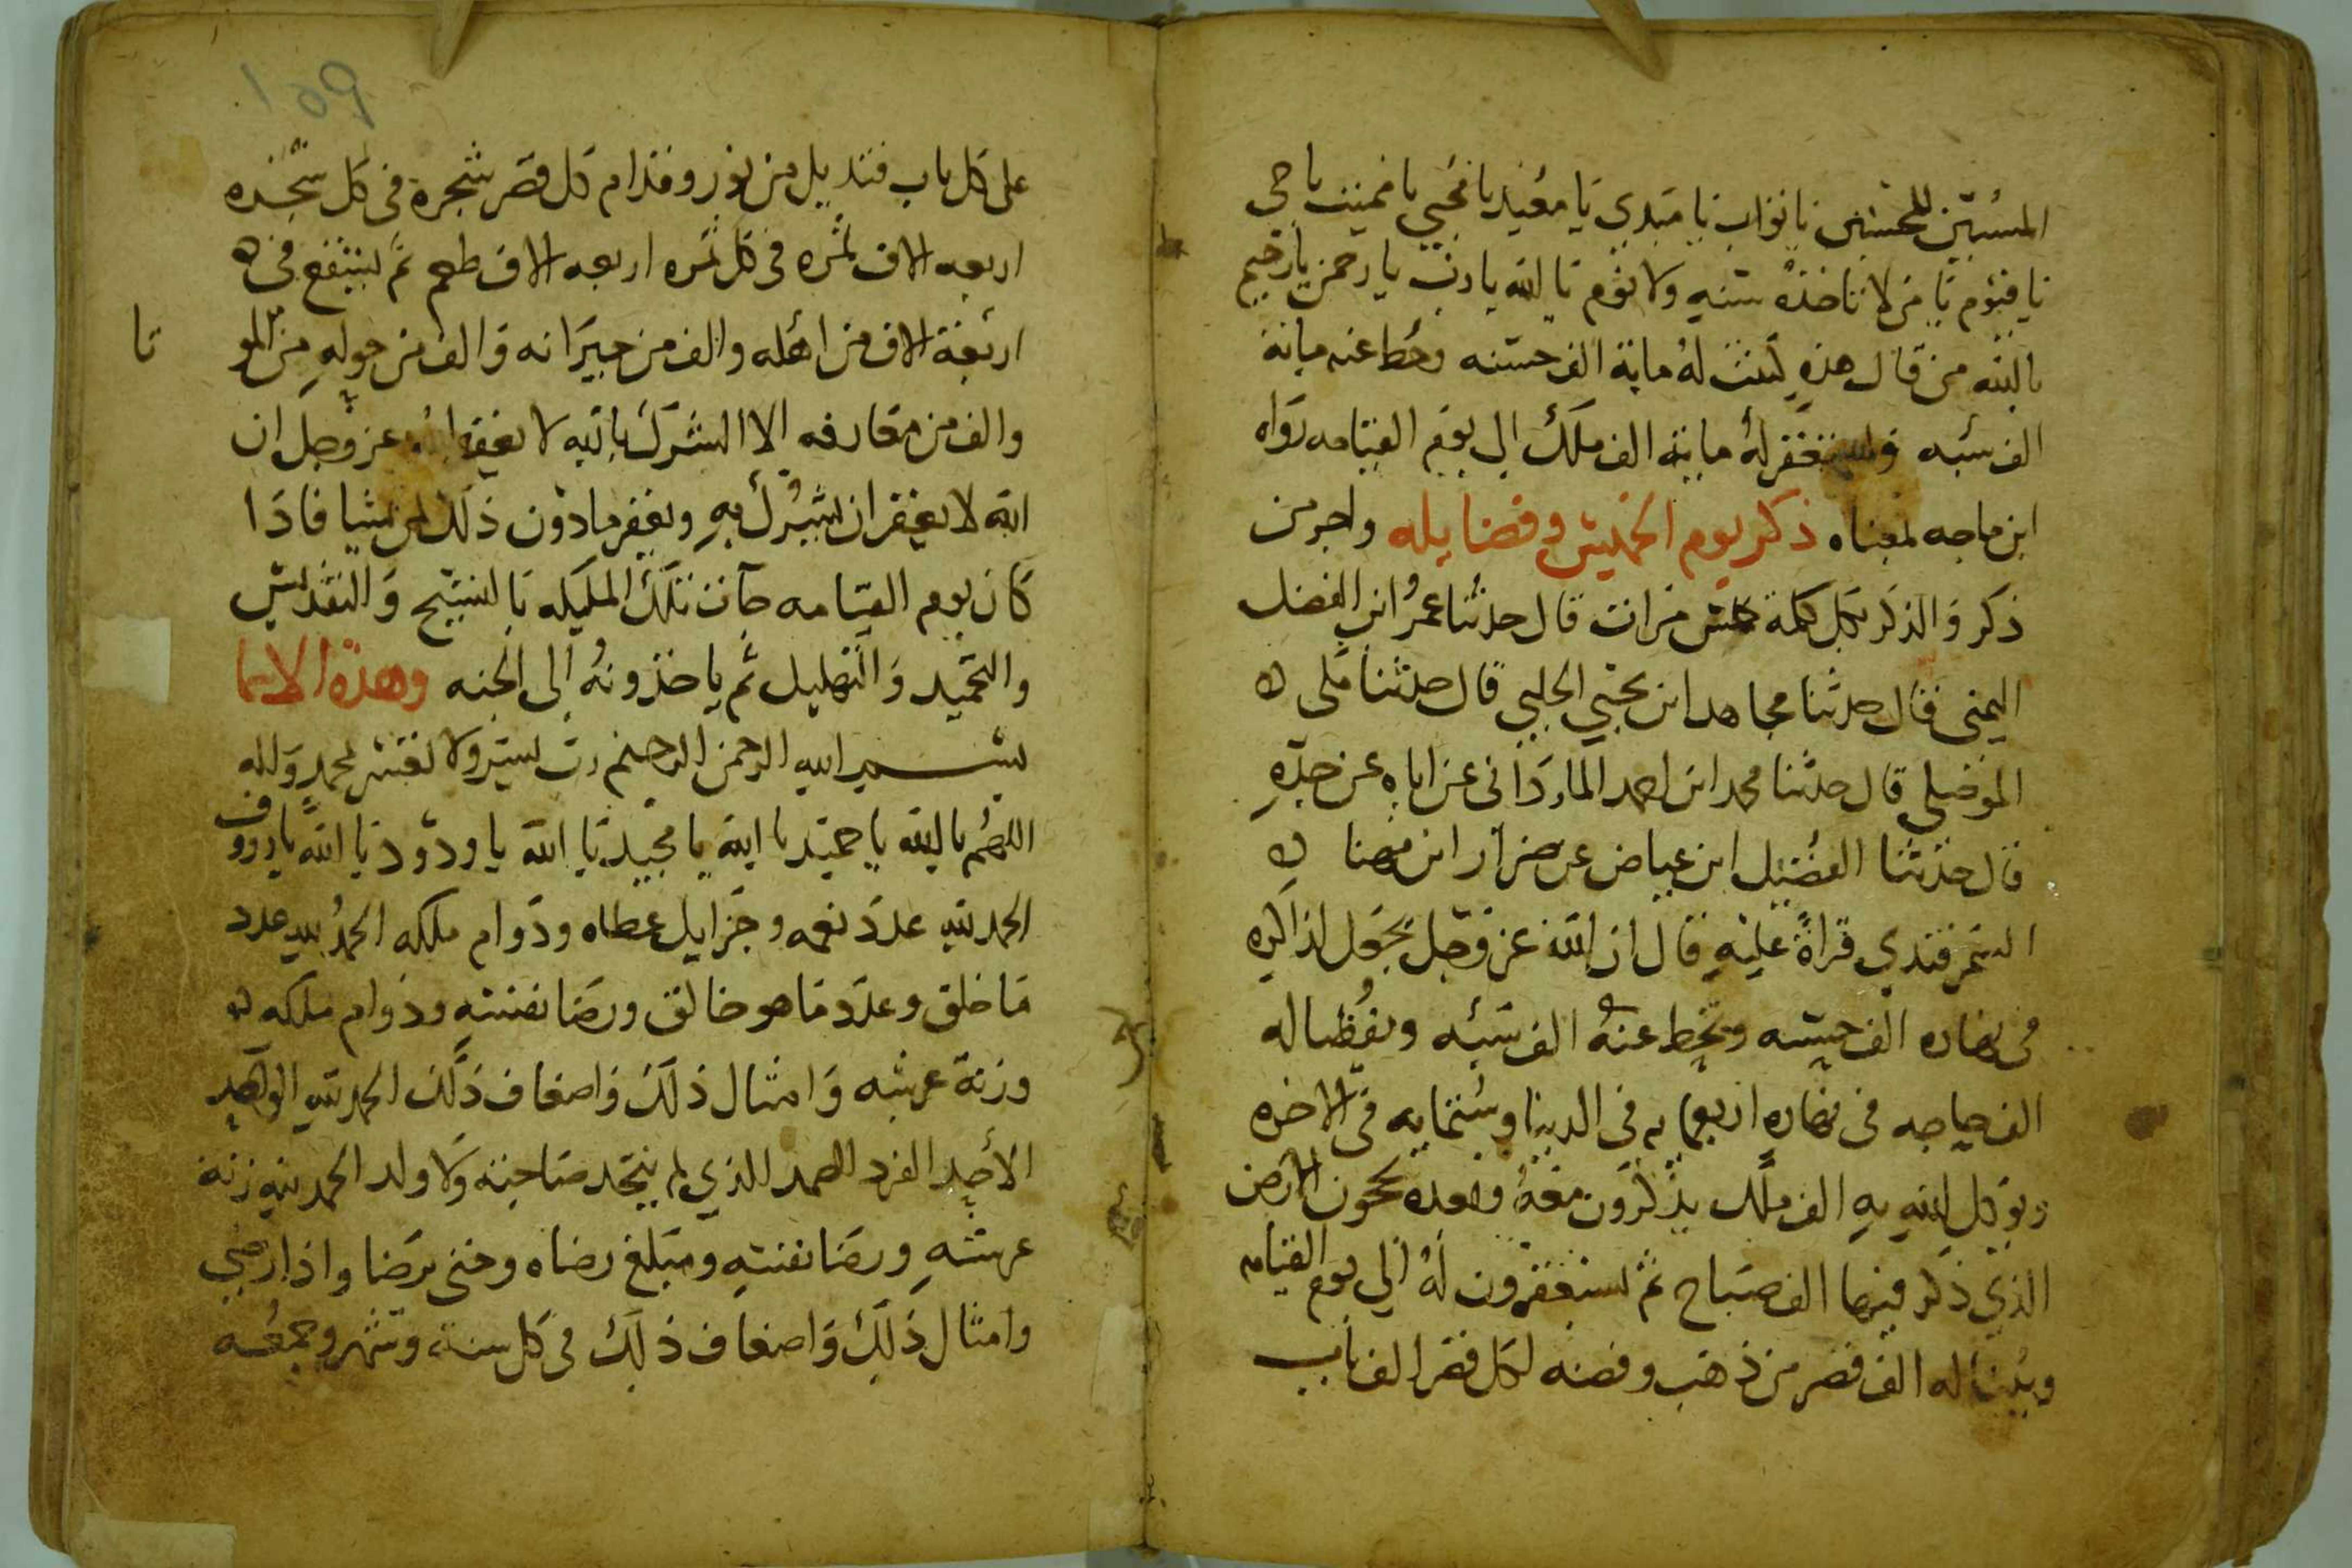 المسيئين للمحسنين يا تواب يا مبدي يا معيد يا محيي يا مميت يا حي
يا قيوم يا من لا تاخذه سنه ولا نوم يا الله يا رب يا رحمن يا رحيم
يا الله من قال هذه كتبت له ماية الف حسنه وحط عنه ماية
الف سيه وليستغفر له ماية الف ملك الى يوم القيامه رواه
ابن ماجه بمعناه ذكر يوم الخميس وفضايله واجر من
ذكر والذكر بكل كلمة عشر مرات قال حدثنا عمر ابن الفضل
اليمنى فقال حدثنا مجاهد ابن يحيي الحلبي قال حدثنا ملى
الموصلي قال حدثنا محمد ابن احمد الماردانى عن اباه عن جده
قال حدثنا الفضيل ابن عياض عن ضرار ابن مهنا
السمرقندي قراة عليه قال ان الله عز وجل يجعل لذاكره
فى نهاره الف حسنه ويحط عنه الف سيه ويقظا له
الف حياجه فى نهاره اربعمايه فى الدنيا وستمايه فى الاخره
ويوكل الله به الف ملك يذكرون معه وبعده يحجون الارض
الذي ذكر فيها الف صباح ثم يستغفرون له الي يوم القيامه
ويبنا له الف قصر من ذهب وفضه لكل قصر الف باب
109
على كل باب قنديل من نور وقدام كل قصر شجرة فى كل شجره
اربعه الاف ثمره فى كل ثمره اربعه الاف طعم ثم يشفع فى
اربعة الاف من اهله والف من جيرانه والف من حوله من المو
نا
والف من معارفه الا الشرك بالله لا يغفر الله عز وجل ان
الله لا يغفر ان يشرك به ويغفر مادون ذلك لمن يشا فاذا
كان يوم القيامه جآت تلك المليكه بالتسبيح والتقديس
والتحميد والتهليل ثم ياخذونه الى الجنه وهذه الاسما
بسم الله الرحمن الرحيم رب يسر ولا تعسر بمحمد واله
اللهم يا الله يا حميد يا الله يا مجيد يا الله يا ودود يا الله يا رووف
الحمد لله عدد نعمه وجزايل عطاه ودوام ملكه الحمد لله عدد
ما خلق وعدد ما هو خالق ورضا نفسه ودوام ملكه
وزنة عرشه وامثال ذلك واضعاف ذلك الحمد لله الواحد
الأحد الفرد الصمد الذي لم يتخد صاحبة ولا ولد الحمد لله زنة
عرشه ورضا نفسه ومبلغ رضاه وحتى يرضا واذا رضي
وامثال ذلك واضعاف ذلك فى كل سنة وشهر وجمعه